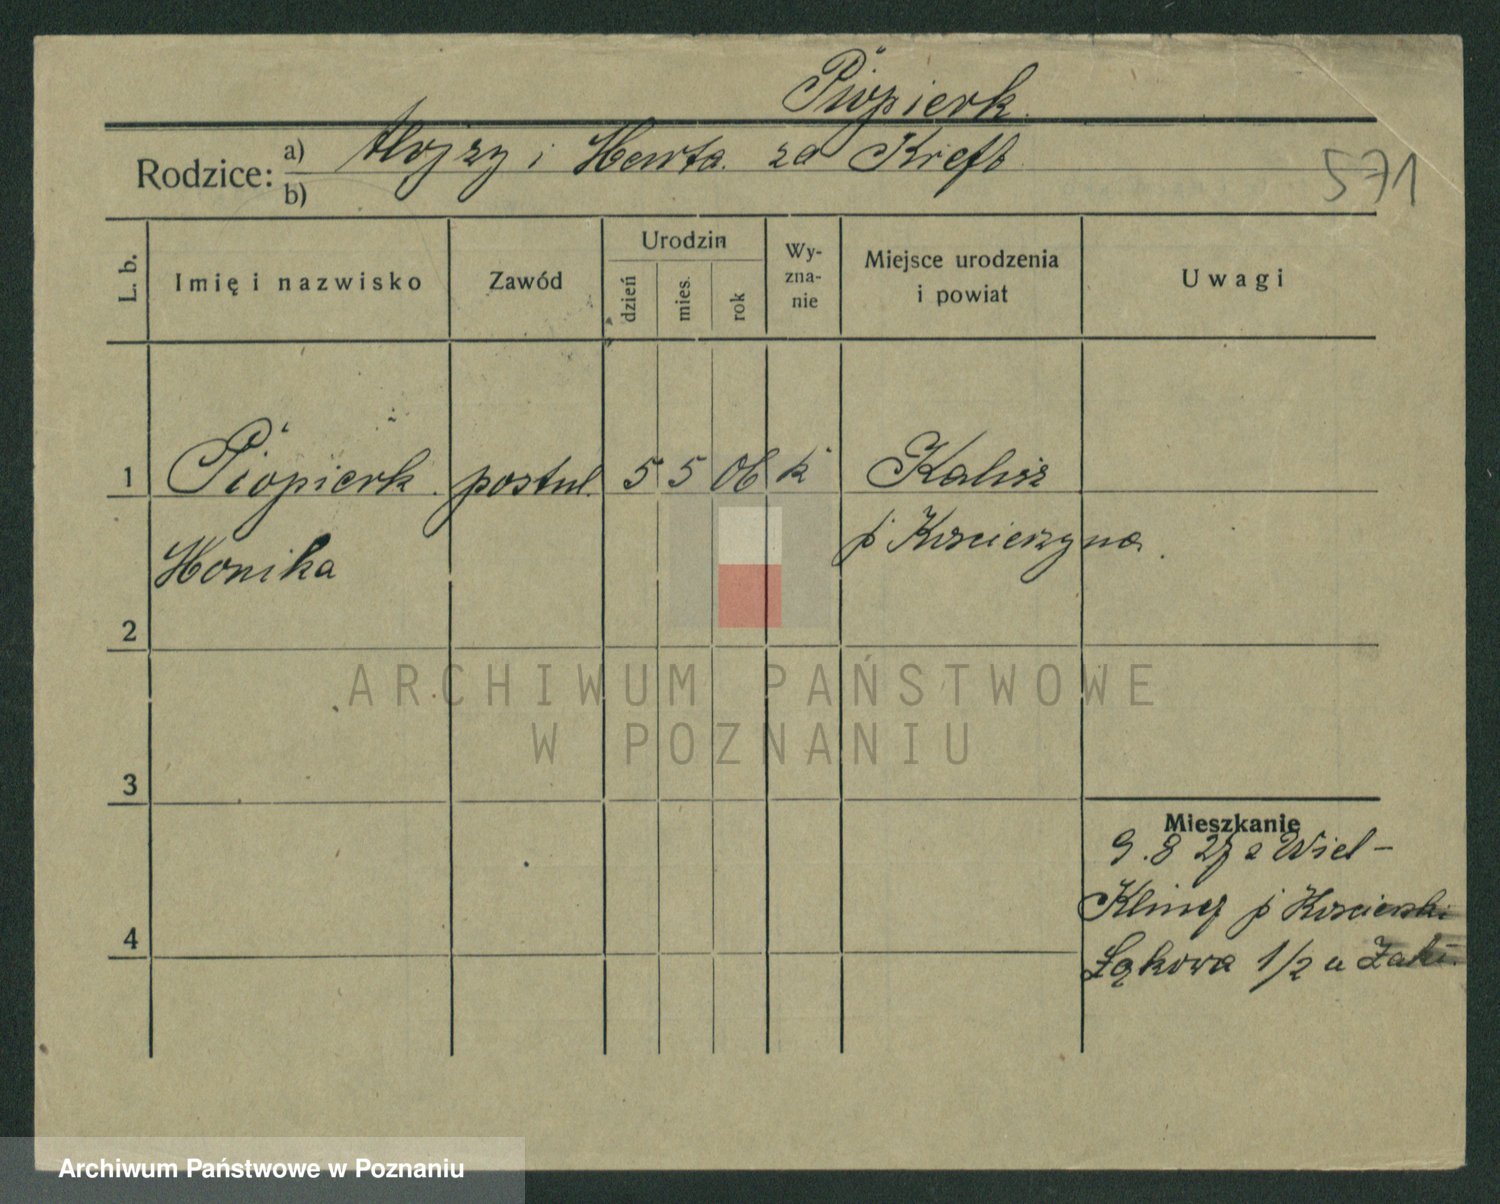 Piopierk.
Rodzice: a) Alojzy i Marta za Kreft
b)
571
L. b.
Imię i nazwisko
Zawód
Urodzin
dzień
mies.
rok
Wy-
zna-
nie
Miejsce urodzenia
i powiat
Uwagi
1 Piopierk postul. 5 5 06 k Kalisz
Monika p Koscierzyna.
2
3
4
Mieszkanie
9.8 27 z Wiel-
Klincz p Koscierski
Łąkowa 1/2 u
ARCHIWUM PAŃSTWOWE
W POZNANIU
Archiwum Państwowe w Poznaniu